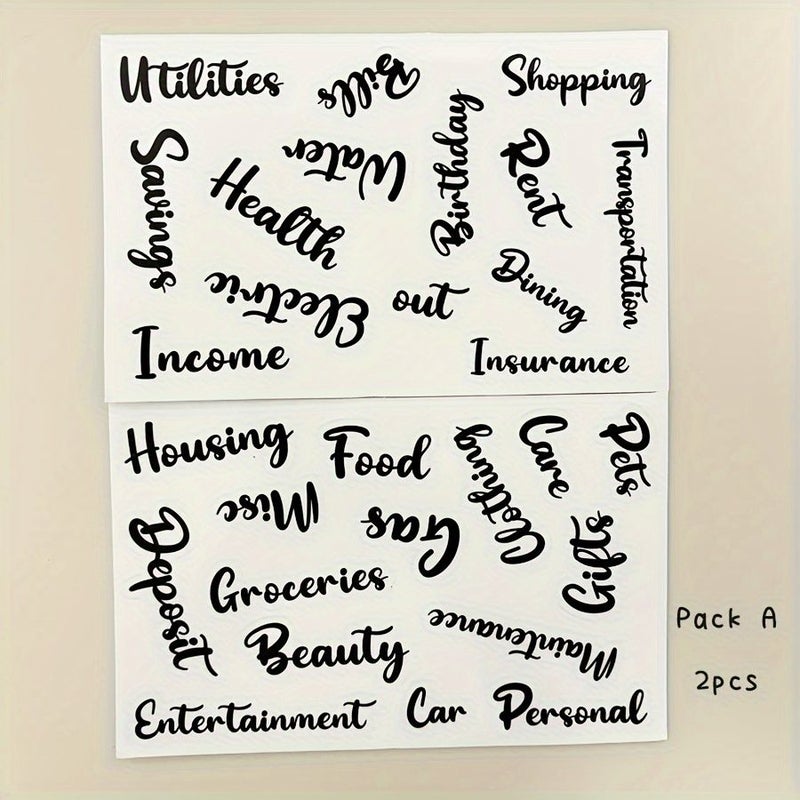 Utilities
Bills
Shopping
Savings
Water
Birthday
Rent
Transportation
Health
Electric
out
Dining
Income
Insurance
Housing
Food
Clothing
Care
Pets
Misc
Gas
Deposit
Gifts
Groceries
Maintenance
Beauty
Entertainment
Car
Personal
Pack A
2pcs